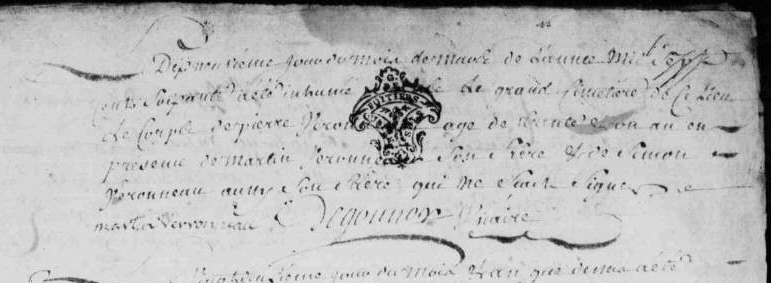 Dixneufvieme jour du mois de mars de l'annee mil sept
cents soixante a été inhumé le grand simetiere de ce lieu
le corps de pierre Veron age de trente et on an en
presence de martin Veronneau son frere & de Simon
Veronneau aussy son frere qui ne sçait signer
martin verronneau Degounor vicaire
jour du mois & an que dessus a été